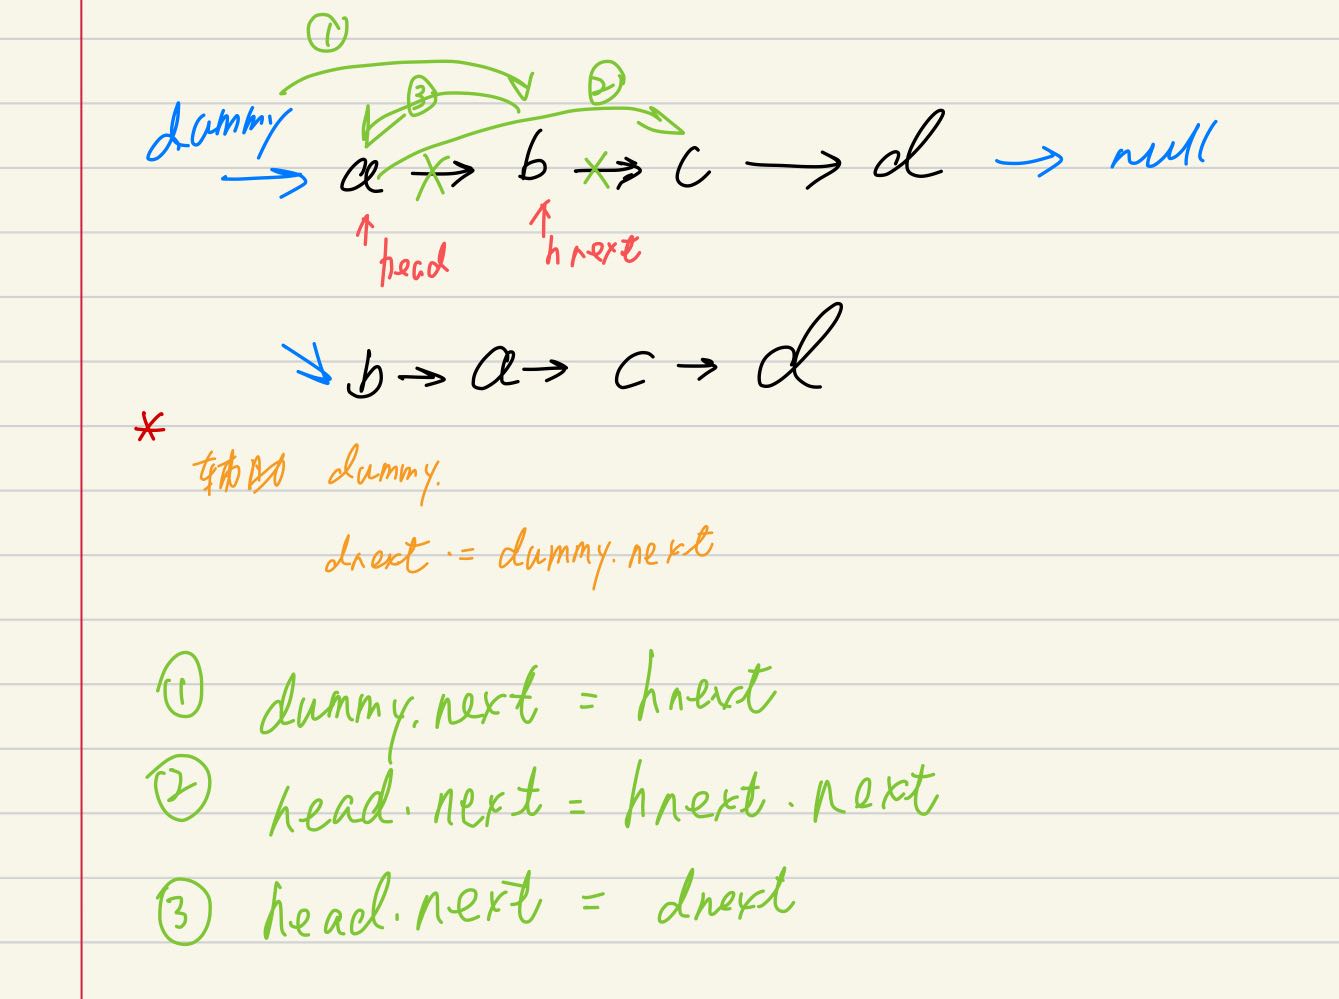 ① ③ ②
dummy → a → b → c → d → null
head hnext
b → a → c → d
*
辅助 dummy.
dnext := dummy.next
① dummy.next = hnext
② head.next = hnext.next
③ head.next = dnext